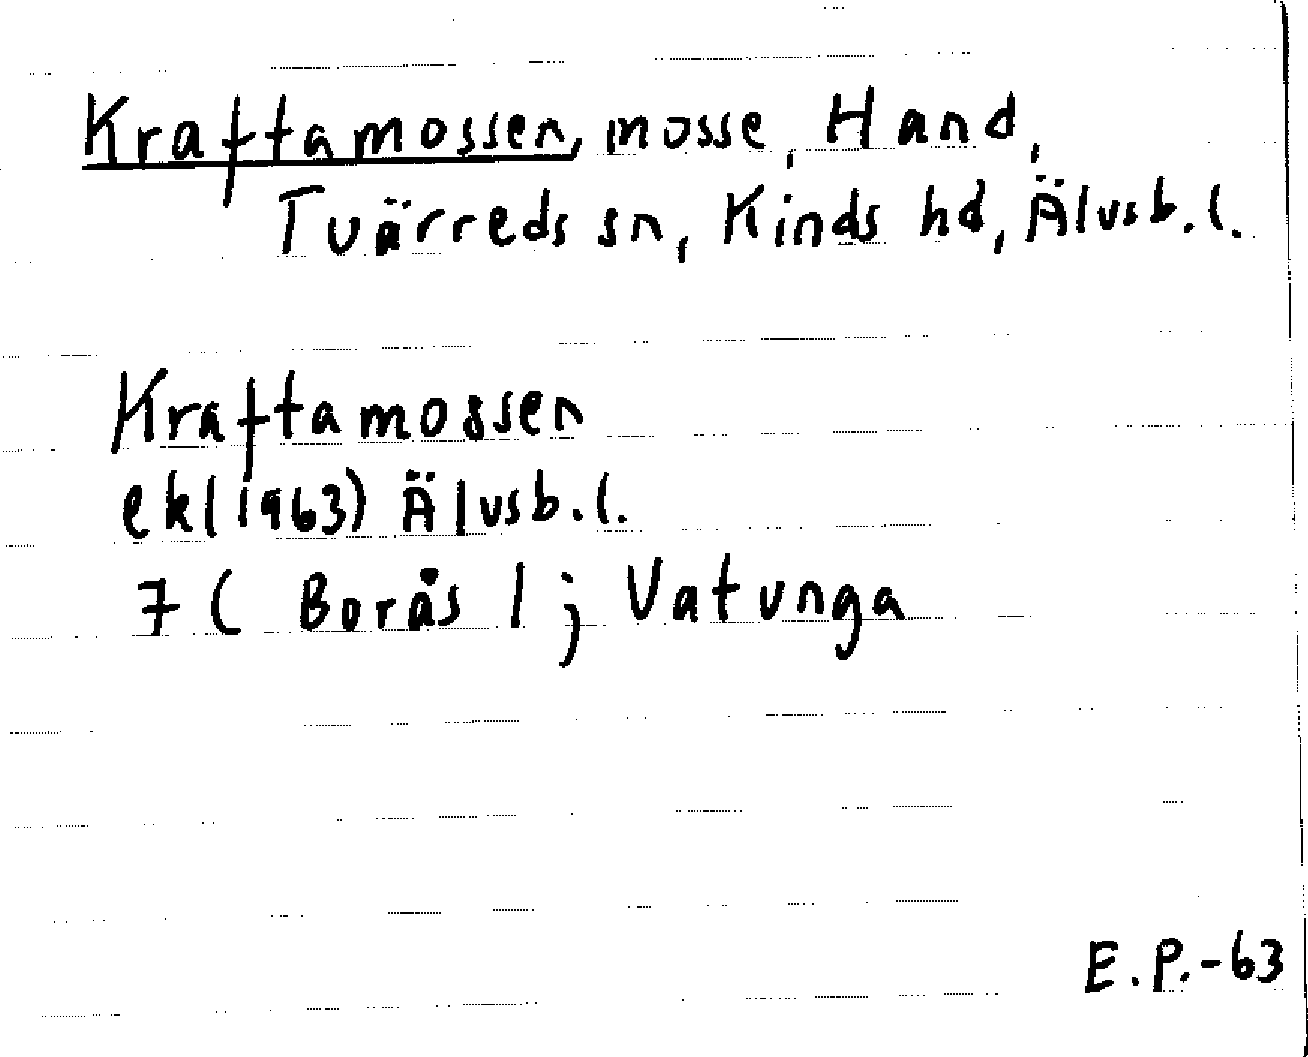 Kraftamossen, mosse, Hand,
Tvärreds sn, Kinds hd, Älvsb. l.
Kraftamossen
ekl 1963) Älvsb. l.
7 ( Borås / ; Vatunga
E.P.-63